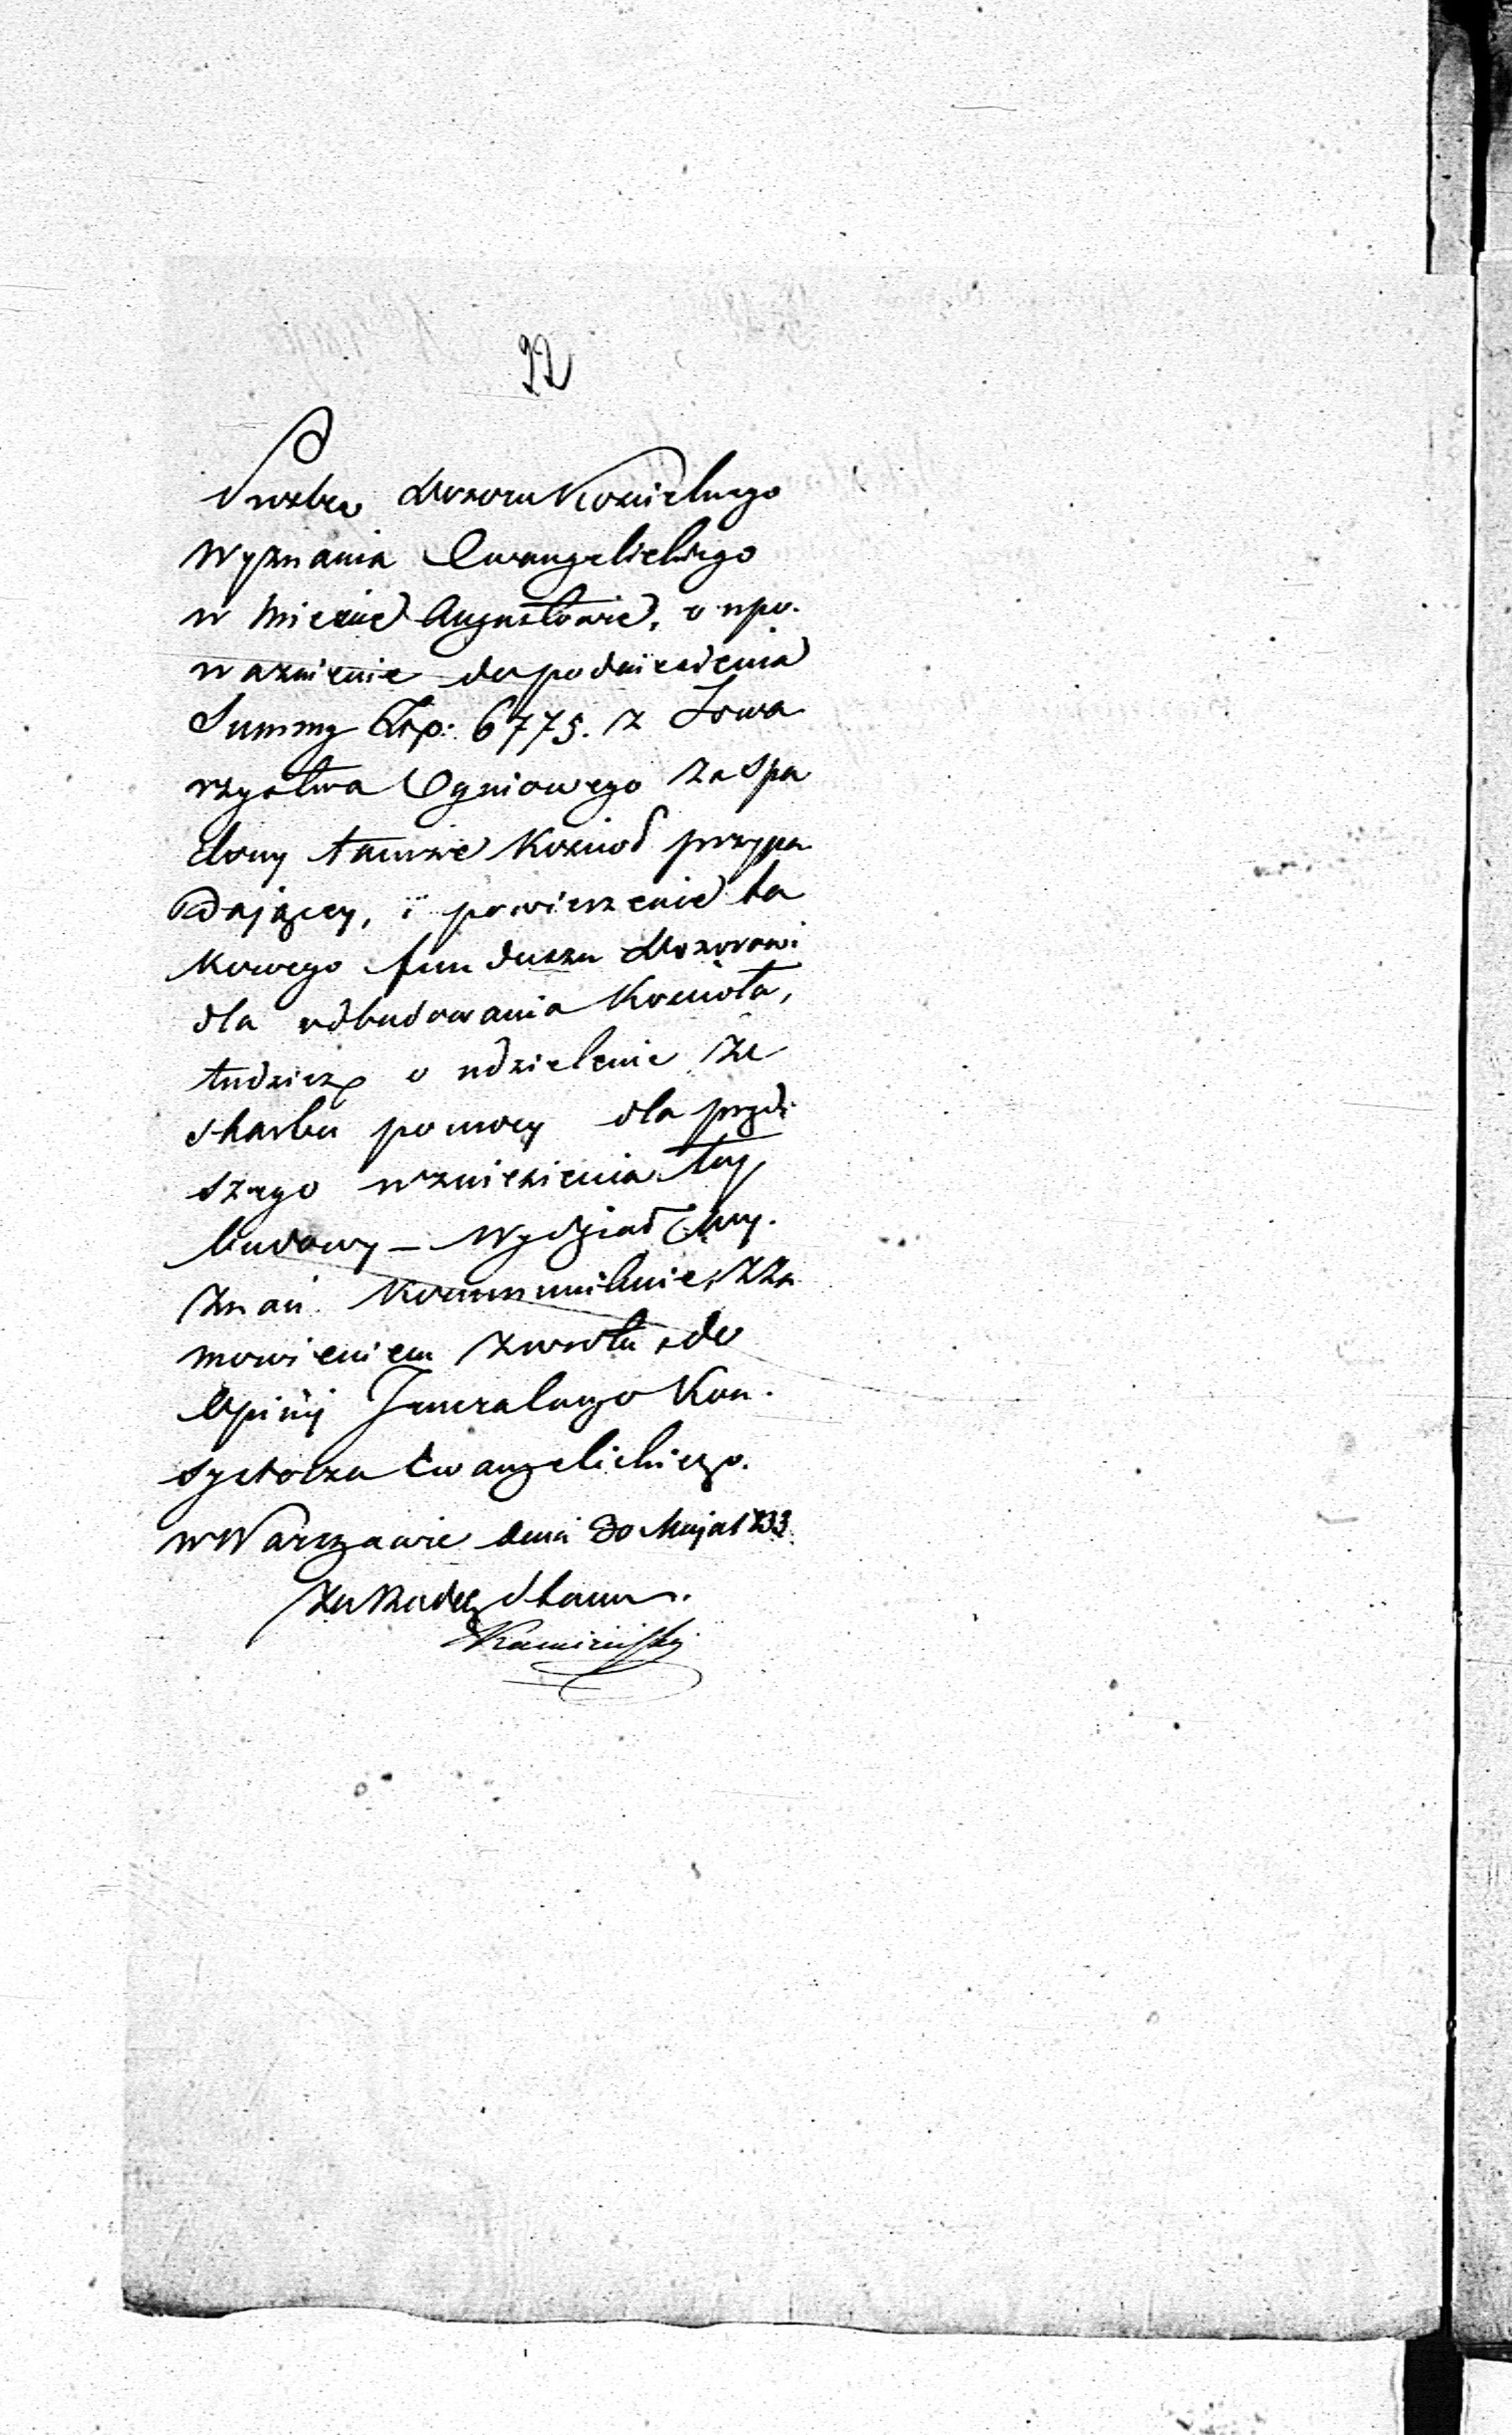 22
Prozba Dozoru Kościelnego
Wyznania Ewangelickiego
w Mieście Augustowie, o upo-
ważnienie do podniesienia
Summy Złp: 6775. z Towa
rzystwa Ogniowego za spa
lony tamże Kościoł przypa
dającey, i powierzenie ta
kowego funduszu Dozorowi
dla odbudowania Kościoła,
tudzież o udzielenie ze
skarbu pomocy dla
szego wzniesienia tey
budowy – Wydział Wy-
znań kommunikuie, z za
mowieniem zwrotu, do
Opinij Jeneralnego Kon-
systorza Ewangelickiego.
w Warszawie dnia 30 Maja 1833.
Za Radcę Stanu.
Kamiński